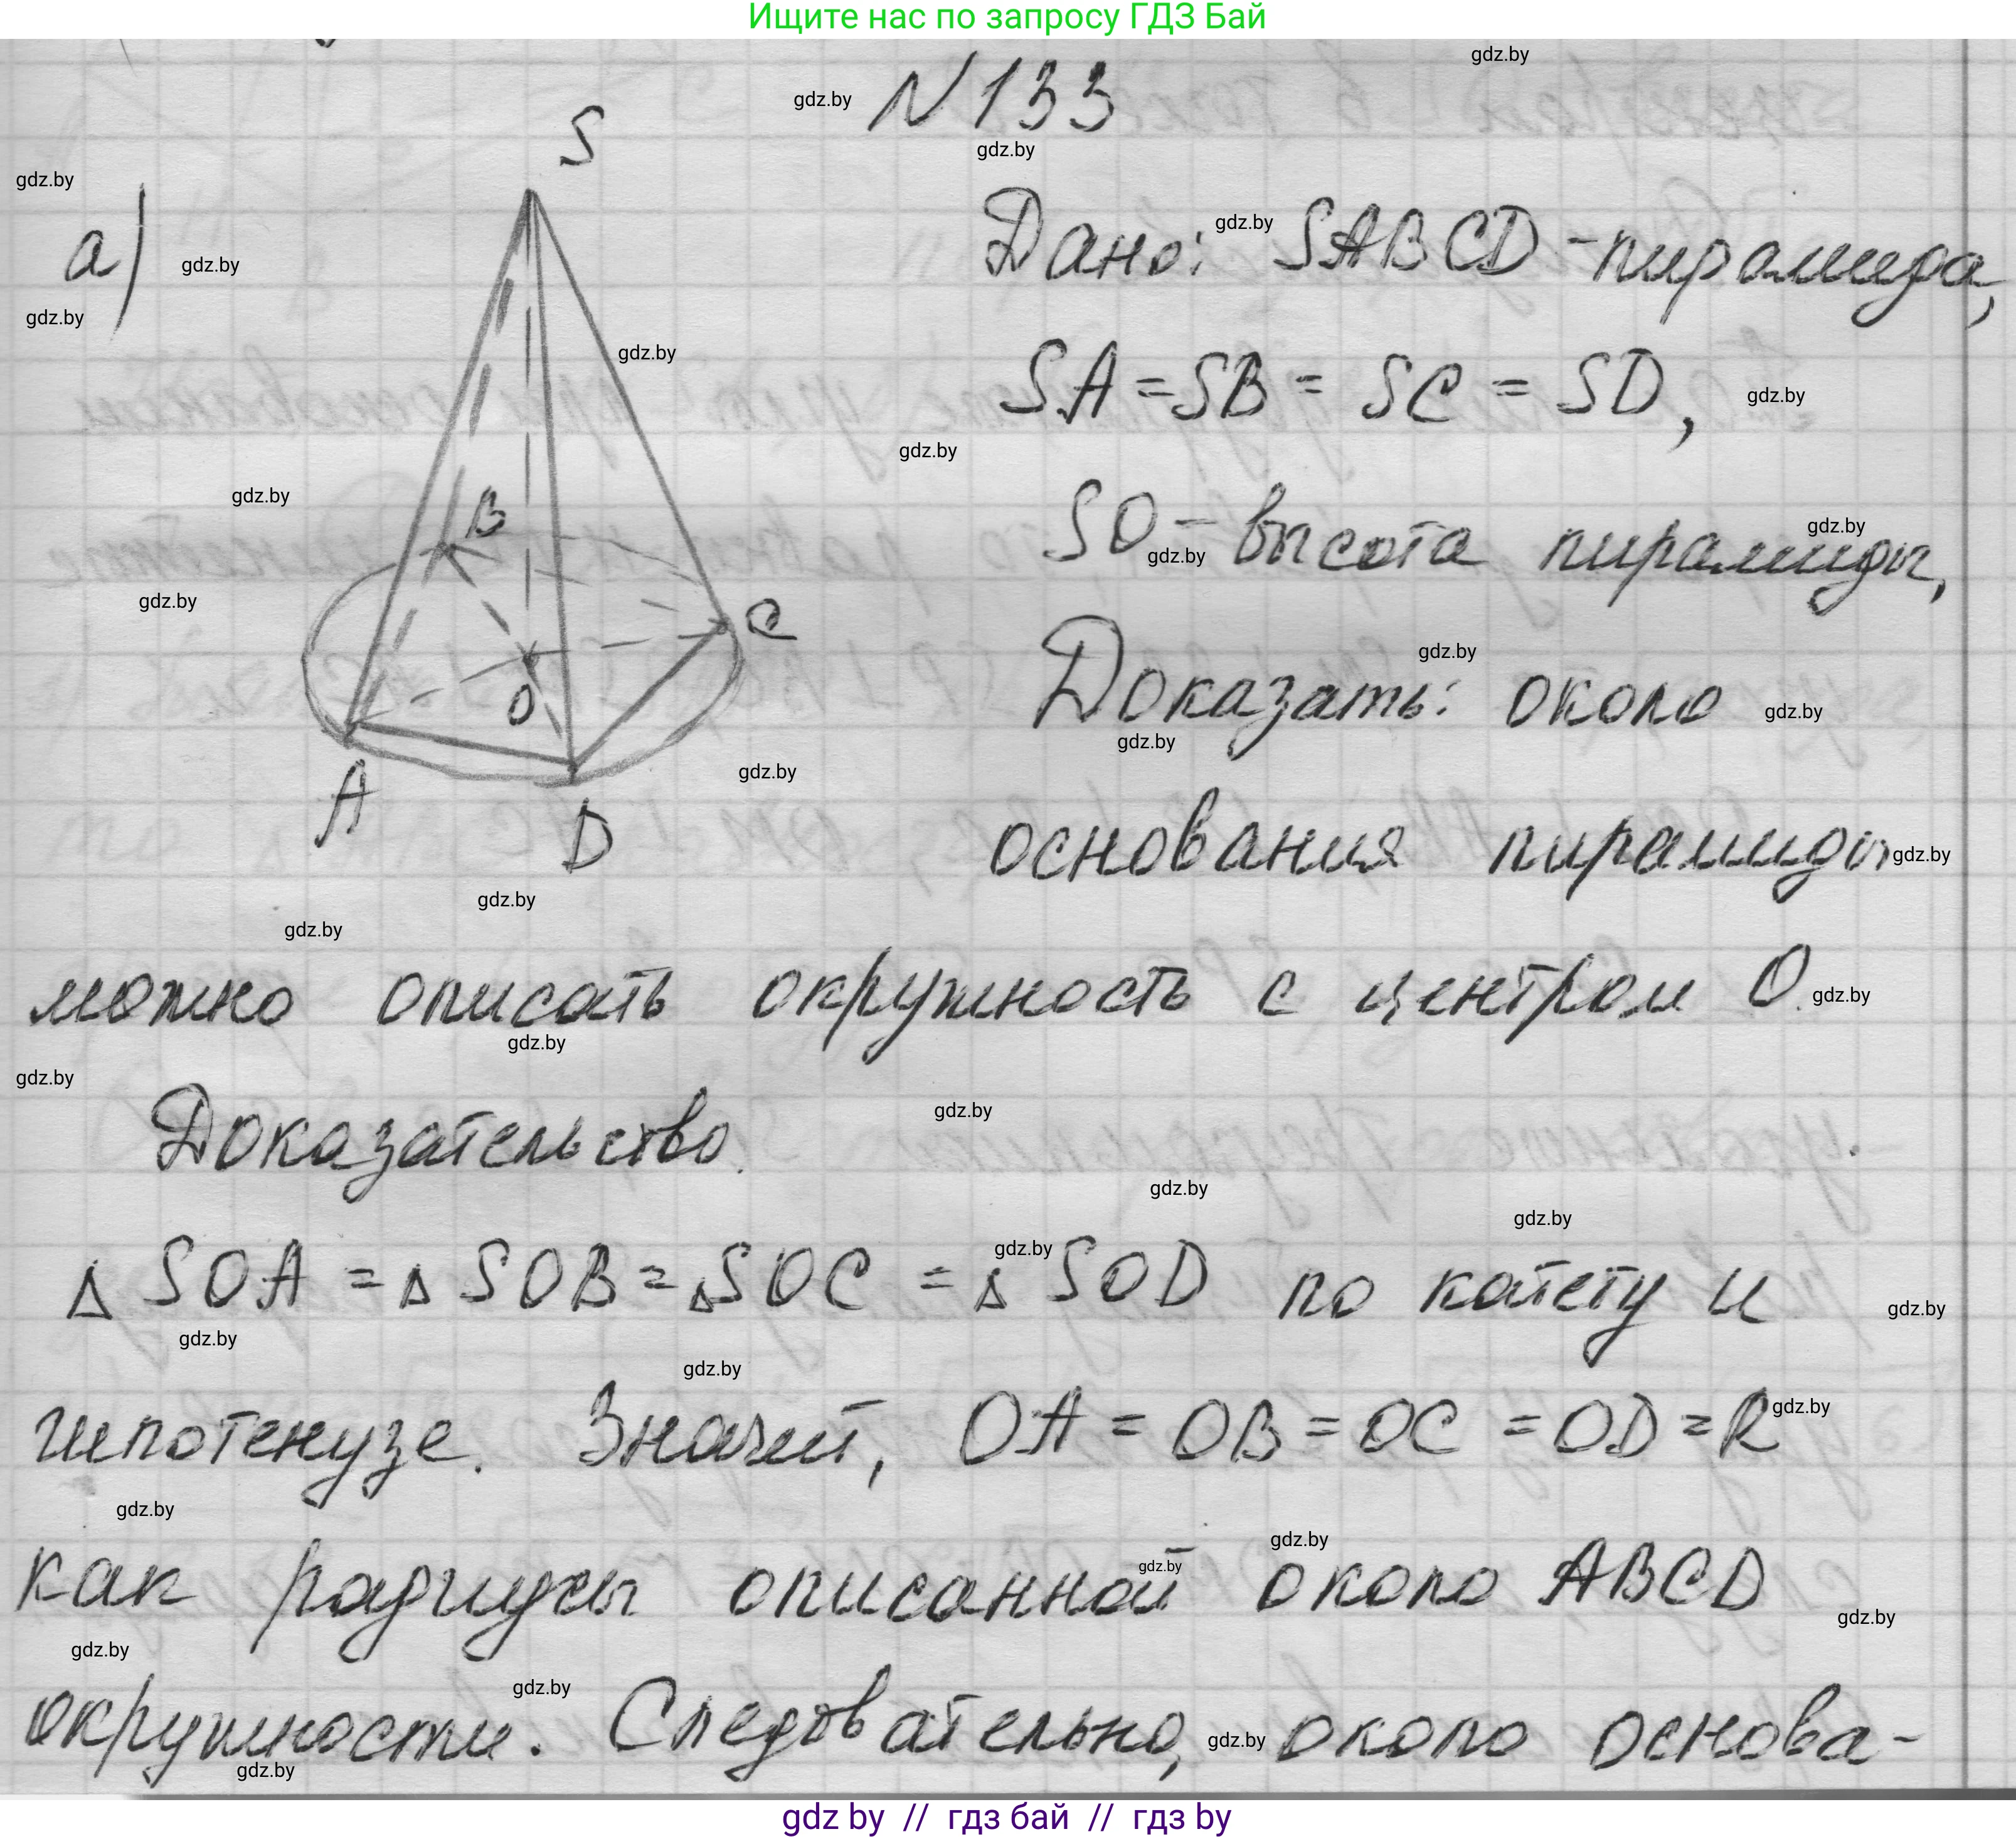 Ищите нас по запросу ГДЗ Бай
N 133
а)
S
B
C
O
A
D
Дано: SABCD - пирамида,
SA = SB = SC = SD,
SO - высота пирамиды,
Доказать: около
основания пирамиды
можно описать окружность с центром О.
Доказательство.
Δ SOA = Δ SOB = Δ SOC = Δ SOD по катету и
гипотенузе. Значит, OA = OB = OC = OD = R
как радиусы описанной около ABCD
окружности. Следовательно, около основа-
gdz by // гдз бай // гдз by